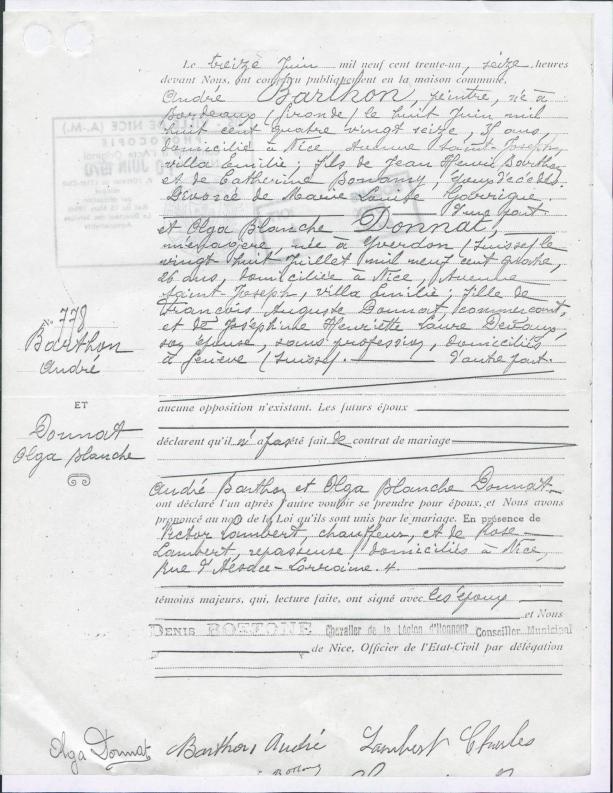 Le treize Juin mil neuf cent trente-un, seize heures
devant Nous, ont comparu publiquement en la maison commune,
André Barthon, peintre, né à
Bordeaux (Gironde) le huit Juin mil
huit cent quatre vingt seize, 35 ans,
domicilié à Nice, Avenue Saint-Joseph,
villa Emilie; fils de Jean Henri Barthon
et de Catherine Bontamy, époux décédés.
Divorcé de Marie Louise
d'une part
et Olga Blanche Donnat,
ménagère, née à Yverdon (Suisse) le
vingt huit Juillet mil neuf cent quatre,
26 ans, domiciliée à Nice, Avenue
Saint-Joseph, villa Emilie; fille de
François Auguste Donnat, commerçant,
et de Joséphine Henriette Laure
son épouse, sans profession, domiciliés
à Genève (Suisse). d'autre part.
No 778
Barthon
André
ET
Donnat
Olga Blanche
aucune opposition n'existant. Les futurs époux
déclarent qu'il n'a pas été fait de contrat de mariage
André Barthon et Olga Blanche Donnat
ont déclaré l'un après l'autre vouloir se prendre pour époux, et Nous avons
prononcé au nom de la Loi qu'ils sont unis par le mariage. En présence de
Victor Lambert, chauffeur, et de Rose
Lambert, repasseuse, domiciliés à Nice,
rue d'Alsace-Lorraine. 4
témoins majeurs, qui, lecture faite, ont signé avec les époux
et Nous
DENIS Chevalier de la Légion d'Honneur Conseiller Municipal
de Nice, Officier de l'Etat-Civil par délégation
Olga Donnat Barthon André Lambert Charles